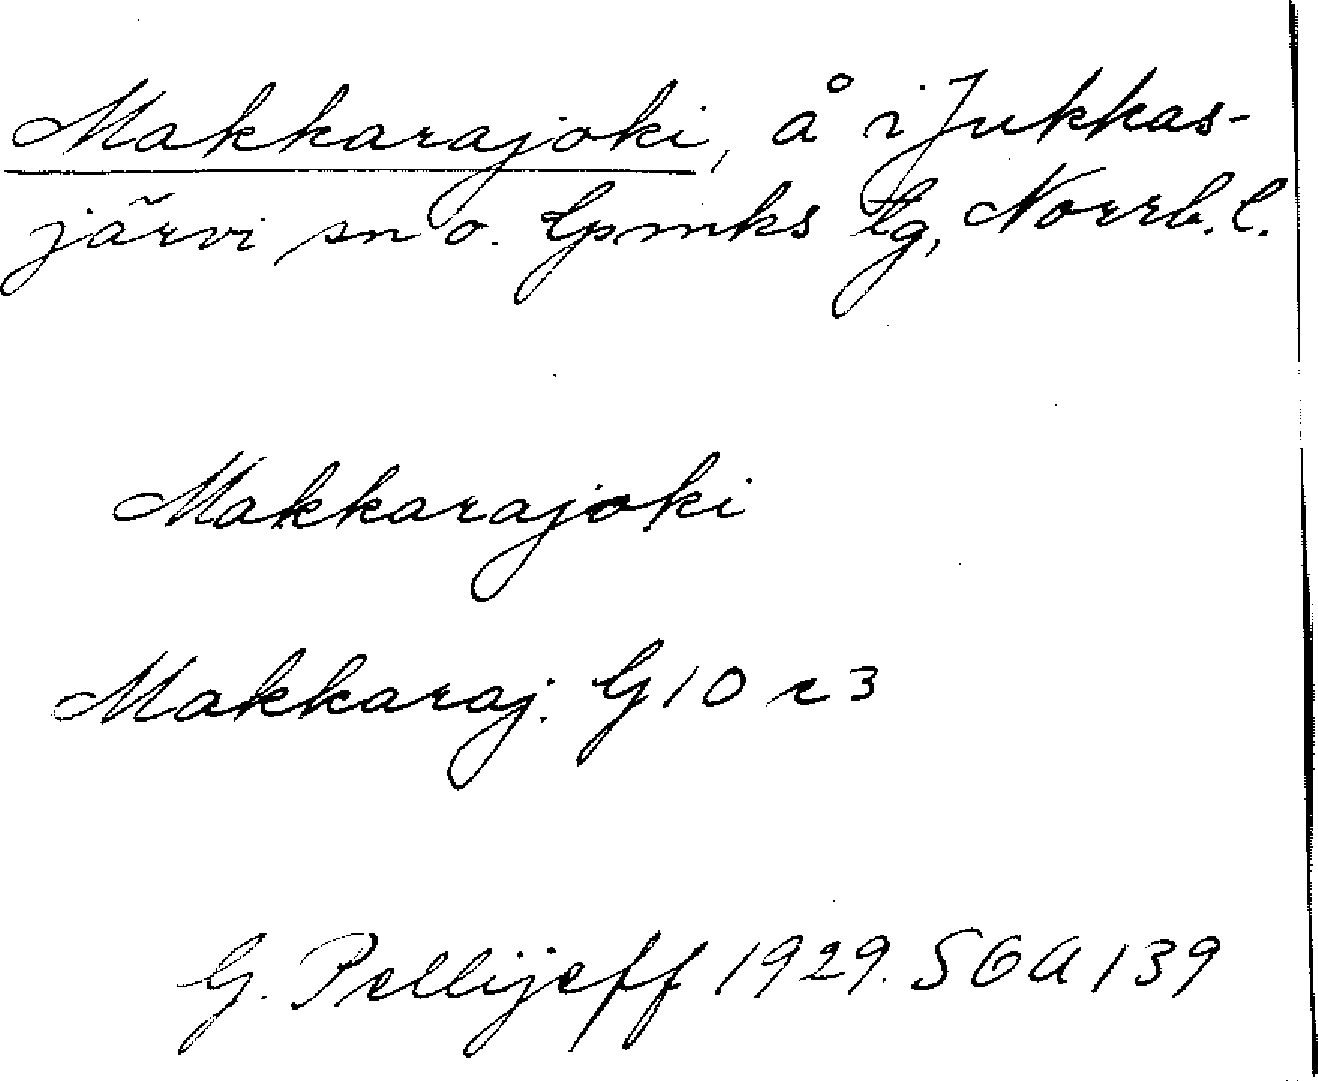 Makkarajoki, å i Jukkas-
järvi sn o. lpmks tg, Norrb. l.
Makkarajoki
Makkaraj. G 10 c 3
G. Pellijeff 1929. SOA 139